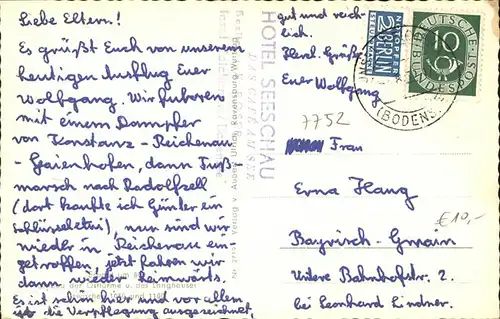 Liebe Eltern!
Es grüßt Euch von unserem
heutigen Ausflug Euer
Wolfgang. Wir fuhren
mit einem Dampfer
von Konstanz - Reichenau
- Gaienhofen, dann Fuß-
marsch nach Radolfzell
(dort kaufte ich Günter ein
Schlüsseletui), nun sind wir
wieder in Reichenau ein-
getroffen, jetzt fahren wir
dann wieder heimwärts.
Es ist sehr hier und vor allem
ist die Verpflegung ausgezeichnet,
gut und reich-
lich.
Herzl. Grüße
Euer Wolfgang
HOTEL SEESCHAU
NOTOPFER
2 BERLIN
STEUERMARKE
DEUTSCHE
BUNDESPOST
(BODENS
7752
Frau
Erna Hang
€10,-
Bayrisch-Gmain
Untere Bahnhofstr. 2.
bei Leonhard Lindner.